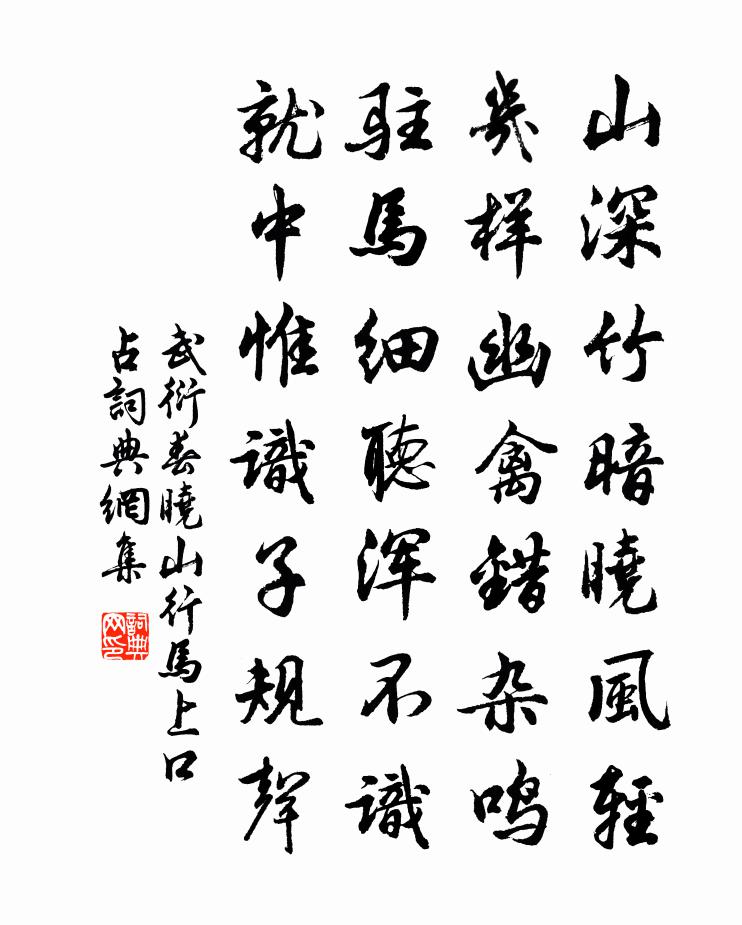 山深竹暗曉風輕
幾样幽禽錯杂鸣
駐馬细聽浑不識
就中惟識子規聲
武衍春曉山行馬上口
占詞典網集
詞典
网印